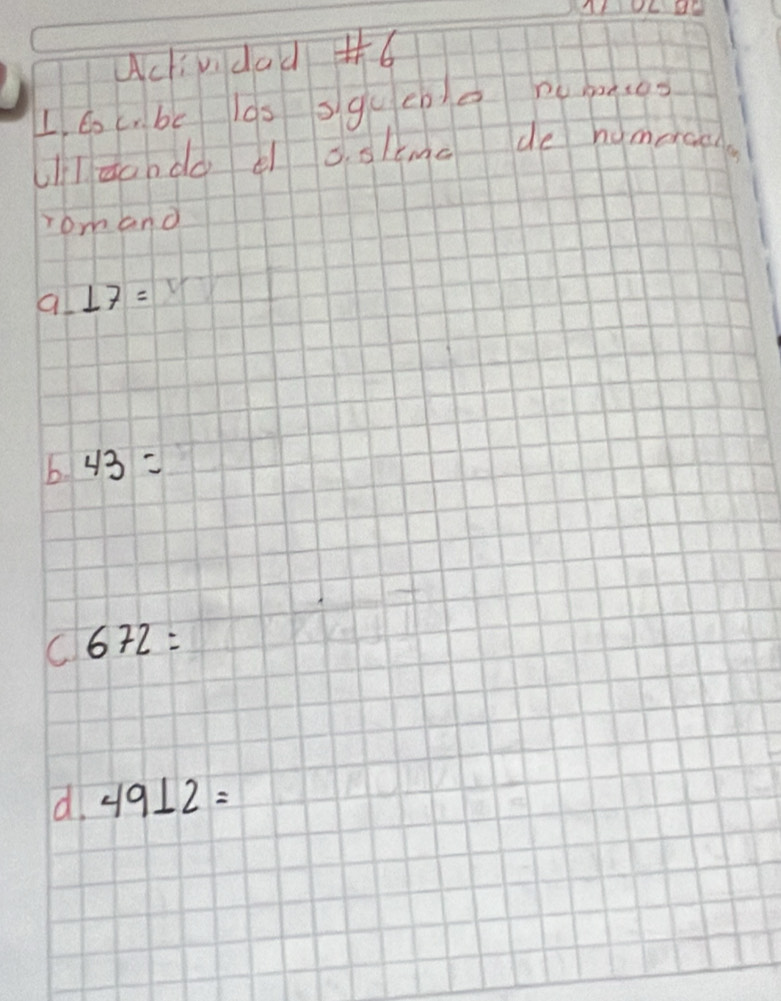 Actividad #6
1. Escribe los siguientes numeros
Utilizando el sistema de numeracion
romano
a. 17 =
b. 43 =
c. 672 =
d. 4912 =